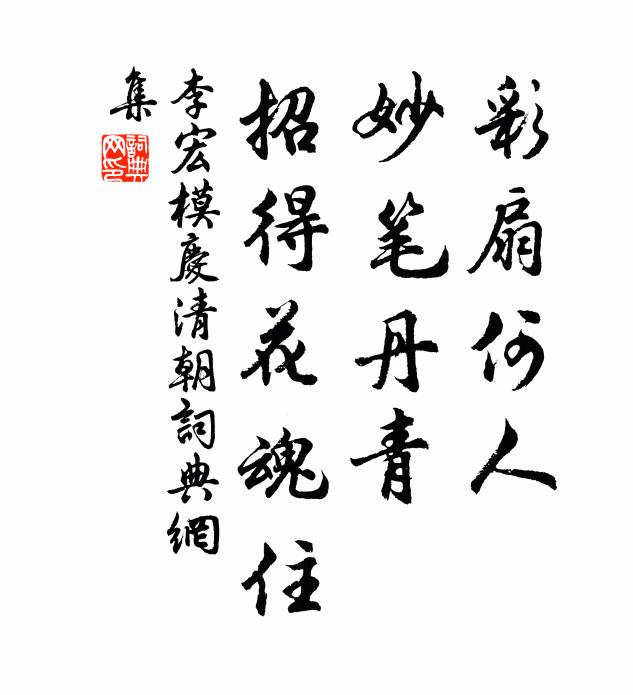 彩扇何人
妙笔丹青
招得花魂住
李宏模慶清朝詞典網
集
詞典网印